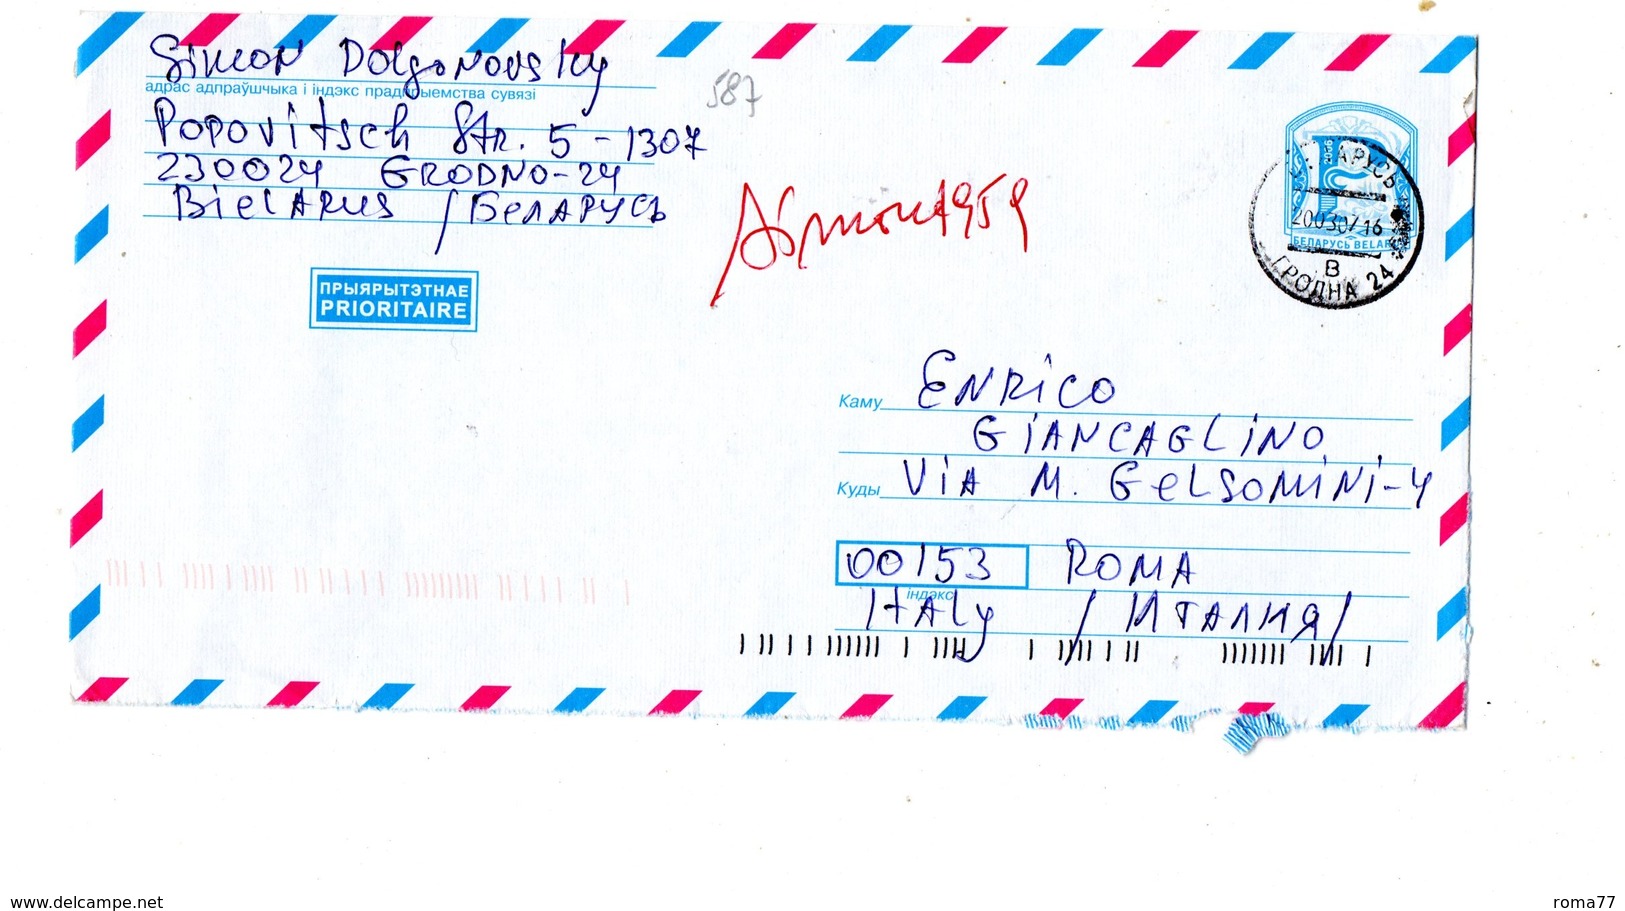 Simon Dolgonovsky
адрас адпраўшчыка і індэкс прадпрыемства сувязі
Popovitsch Str. 5-1307
230024 GRODNO-24
BielARus /БЕЛАРУСЬ
587
ПРЫЯРЫТЭТНАЕ
PRIORITAIRE
2006
БЕЛАРУСЬ BELARUS
200307 16
В
ГРОДНА 24
Каму ENRiCO
GiANCAGLiNO
Куды ViA M. GelSOMiNi-4
00153 ROMA
індэкс
ITALy /ИТАЛИЯ/
www.delcampe.net
roma77